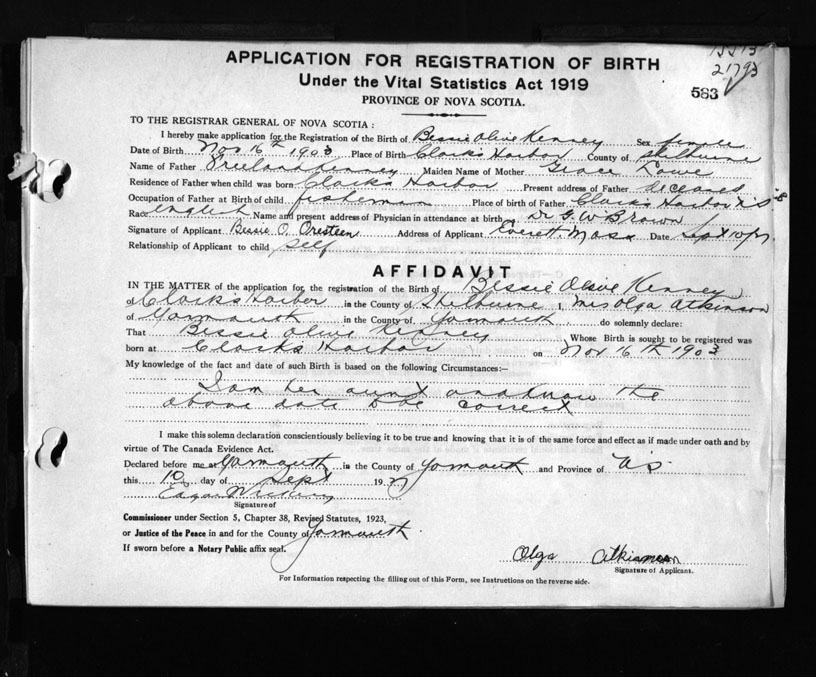 21793
583
APPLICATION FOR REGISTRATION OF BIRTH
Under the Vital Statistics Act 1919
PROVINCE OF NOVA SCOTIA.
TO THE REGISTRAR GENERAL OF NOVA SCOTIA:
I hereby make application for the Registration of the Birth of Bessie Olive Kenney Sex female
Date of Birth Nov 16th 1903 Place of Birth Clarks Harbor County of Shelburne
Name of Father Kenney Maiden Name of Mother Grace Lowe
Residence of Father when child was born Clarks Harbor Present address of Father deceased
Occupation of Father at Birth of child fisherman Place of birth of Father Clarks Harbor N S
Race english Name and present address of Physician in attendance at birth Dr G. W Brown
Signature of Applicant Bessie O. Oresteen Address of Applicant Everett, Mass Date Sept 10
Relationship of Applicant to child self
AFFIDAVIT
IN THE MATTER of the application for the registration of the Birth of Bessie Olive Kenney
of Clark's Harbor in the County of Shelburne I, Mrs Olga Atkinson
of Yarmouth in the County of Yarmouth do solemnly declare:
That Bessie Olive Kenney Whose Birth is sought to be registered was
born at Clarks Harbor on Nov 16th 1903
My knowledge of the fact and date of such Birth is based on the following Circumstances:—
I am her aunt and know the
above date to be correct
I make this solemn declaration conscientiously believing it to be true and knowing that it is of the same force and effect as if made under oath and by
virtue of The Canada Evidence Act.
Declared before me at Yarmouth in the County of Yarmouth and Province of N.S.
this 10 day of Sept 19
Edgar
Signature of
Commissioner under Section 5, Chapter 38, Revised Statutes, 1923,
or Justice of the Peace in and for the County of Yarmouth
If sworn before a Notary Public affix seal.
Olga Atkinson
Signature of Applicant.
For Information respecting the filling out of this Form, see Instructions on the reverse side.